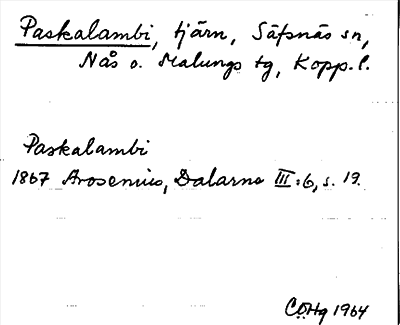 Paskalambi, tjärn, Säfsnäs sn,
Nås o. Malungs tg, Kopp. l.
Paskalambi
1867 Arosenius, Dalarna III:6, s. 19.
CÖHg 1964